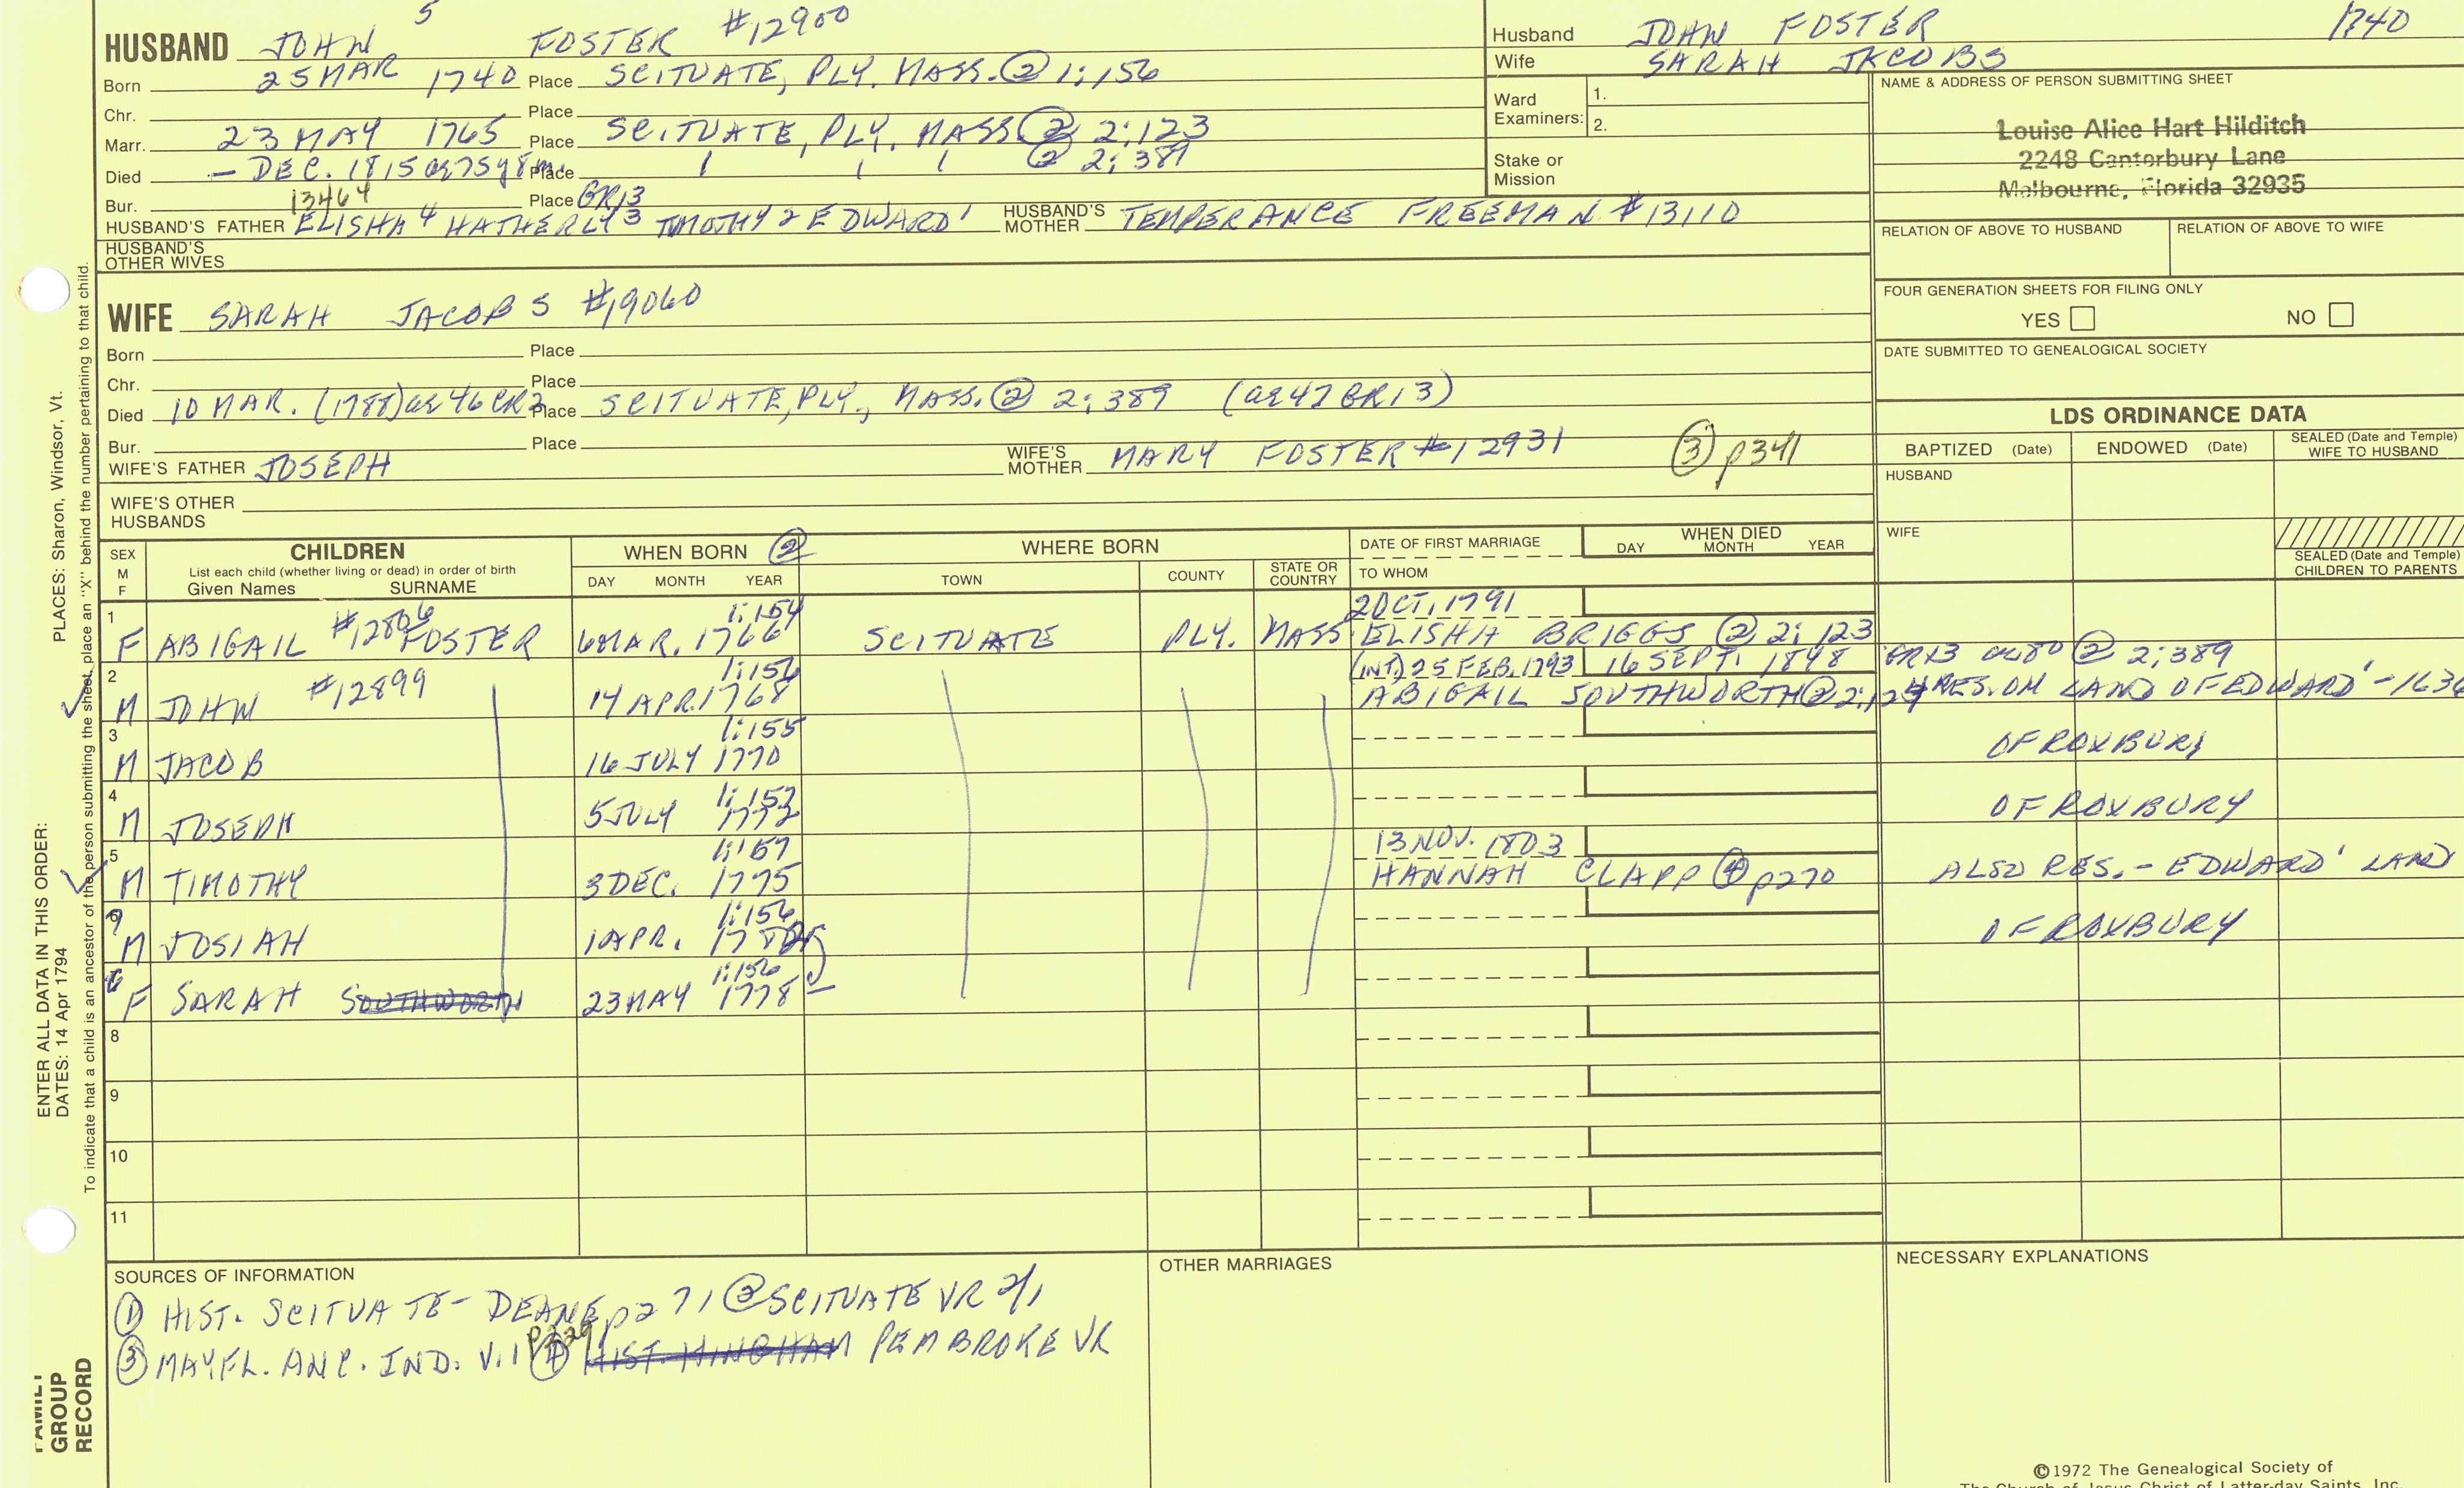 HUSBAND JOHN 5 FOSTER #12900
Born 25 MAR 1740 Place SCITUATE, PLY. MASS. ② 1:156
Chr. Place
Marr. 23 MAY 1765 Place SCITUATE, PLY. MASS ② 2:123
Died — DEC. 1815 ae 75y 8m Place ② 2:389
Bur. Place GR13
13464
HUSBAND'S FATHER ELISHA 4 HATHERLY 3 TIMOTHY 2 EDWARD 1 HUSBAND'S MOTHER TEMPERANCE FREEMAN #13110
HUSBAND'S OTHER WIVES
WIFE SARAH JACOBS #19060
Born Place
Chr. Place
Died 10 MAR. (1788) ae 46 CR2 Place SCITUATE, PLY., MASS. ② 2:389 (ae 47 GR13)
Bur. Place
WIFE'S FATHER JOSEPH WIFE'S MOTHER MARY FOSTER #12931 ③ p341
WIFE'S OTHER HUSBANDS
Husband JOHN FOSTER 1740
Wife SARAH JACOBS
Ward Examiners: 1.
2.
Stake or Mission
NAME & ADDRESS OF PERSON SUBMITTING SHEET
Louise Alice Hart Hilditch
2248 Canterbury Lane
Melbourne, Florida 32935
RELATION OF ABOVE TO HUSBAND RELATION OF ABOVE TO WIFE
FOUR GENERATION SHEETS FOR FILING ONLY
YES NO
DATE SUBMITTED TO GENEALOGICAL SOCIETY
LDS ORDINANCE DATA
BAPTIZED (Date) ENDOWED (Date) SEALED (Date and Temple) WIFE TO HUSBAND
HUSBAND
WIFE
SEALED (Date and Temple) CHILDREN TO PARENTS
SEX M F CHILDREN List each child (whether living or dead) in order of birth Given Names SURNAME
WHEN BORN ② DAY MONTH YEAR
WHERE BORN TOWN COUNTY STATE OR COUNTRY
DATE OF FIRST MARRIAGE TO WHOM
WHEN DIED DAY MONTH YEAR
1 1:154 2 OCT, 1791
F ABIGAIL #12806 FOSTER 6 MAR. 1766 SCITUATE PLY. MASS. ELISHA BRIGGS ② 2:123
2 1:156 (INT) 25 FEB. 1793 16 SEPT. 1848 GR13 ae 80 ② 2:389
M JOHN #12899 14 APR. 1768 ABIGAIL SOUTHWORTH ② 2:124 RES. ON LAND OF EDWARD 1 - 1636
3 1:155
M JACOB 16 JULY 1770 OF ROXBURY
4 1:157
M JOSEPH 5 JULY 1772 OF ROXBURY
5 1:159 13 NOV. 1803
M TIMOTHY 3 DEC. 1775 HANNAH CLAPP ④ p270 ALSO RES. - EDWARD 1 LAND
7 1:156
M JOSIAH 1 APR. OF ROXBURY
6 1:156
F SARAH SOUTHWORTH 23 MAY 1778
8
9
10
11
SOURCES OF INFORMATION
① HIST. SCITUATE - DEANE p271 ② SCITUATE VR 2/1
③ MAYFL. ANC. IND. V.1 p229 ④ HIST. HINGHAM PEMBROKE VR
OTHER MARRIAGES
NECESSARY EXPLANATIONS
©1972 The Genealogical Society of
The Church of Jesus Christ of Latter-day Saints, Inc.
ENTER ALL DATA IN THIS ORDER:
DATES: 14 Apr 1794 PLACES: Sharon, Windsor, Vt.
To indicate that a child is an ancestor of the person submitting the sheet, place an "X" behind the number pertaining to that child.
FAMILY
GROUP
RECORD